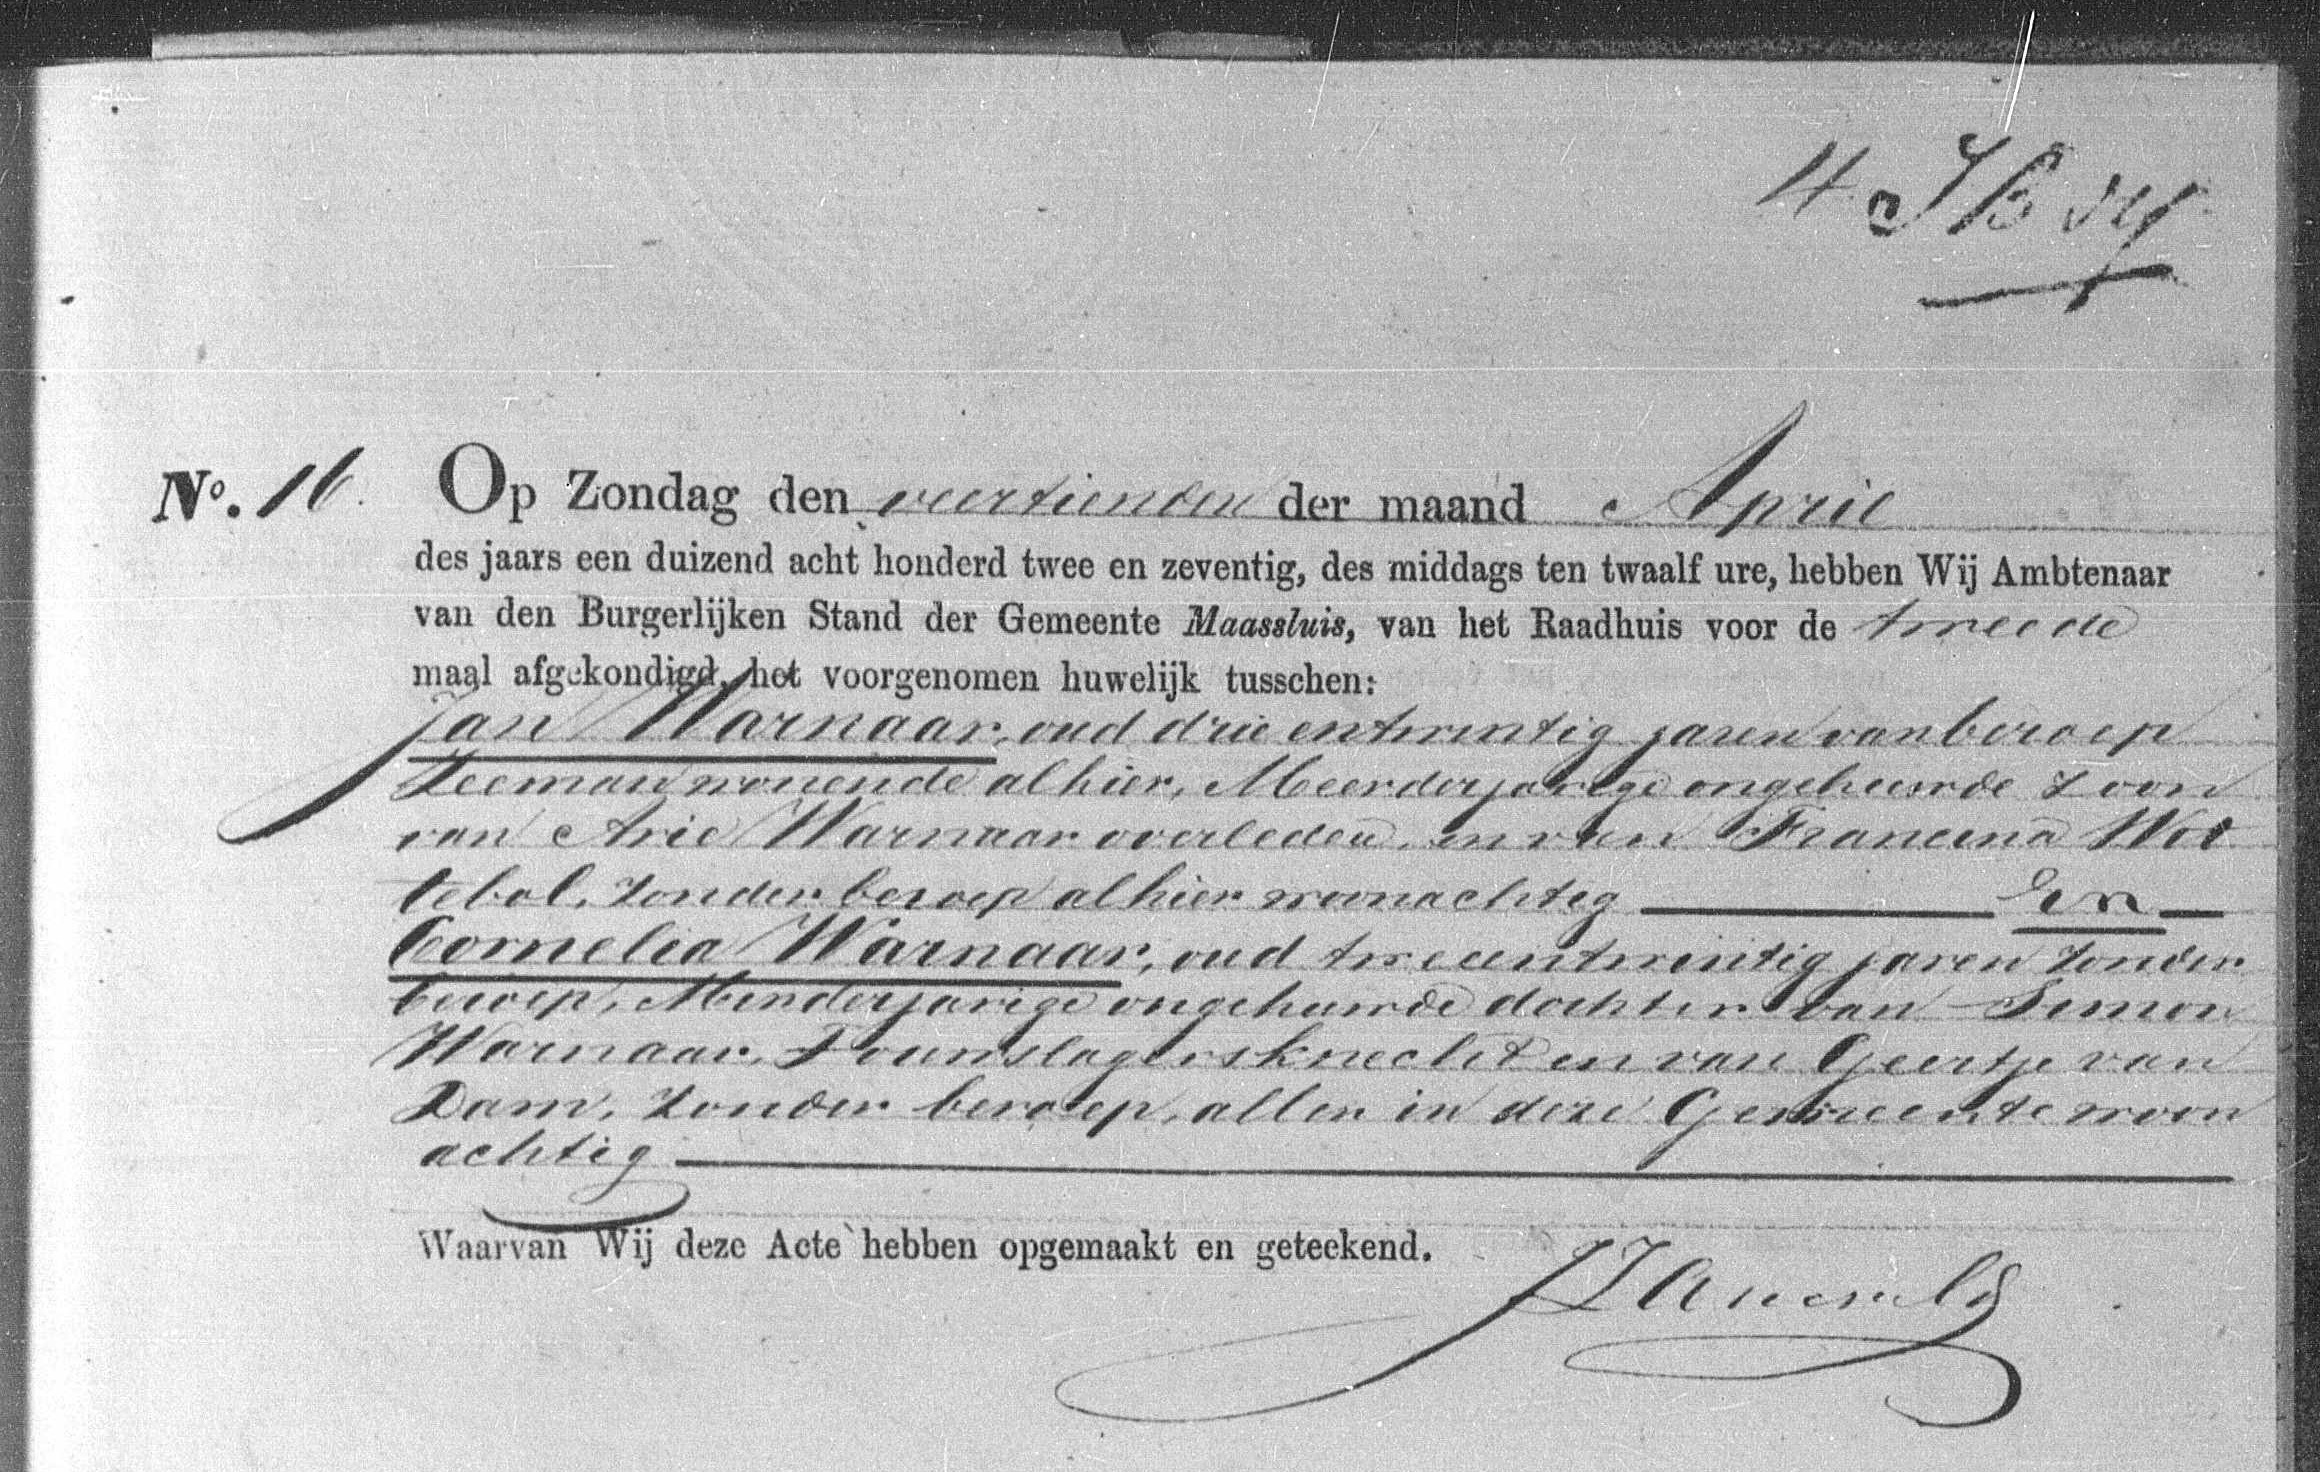 4
No. 16. Op Zondag den veertienden der maand April
des jaars een duizend acht honderd twee en zeventig, des middags ten twaalf ure, hebben Wij Ambtenaar
van den Burgerlijken Stand der Gemeente Maassluis, van het Raadhuis voor de tweede
maal afgekondigd, het voorgenomen huwelijk tusschen:
Jan Warnaar, oud drie entwintig jaren van beroep
Zeeman wonende alhier, Meerderjarige ongehuwde Zoon
van Arie Warnaar overleden, en van Francina Wot
tebol, zonder beroep alhier woonachtig En
Cornelia Warnaar, oud tweeentwintig jaren zonder
beroep, Minderjarige ongehuwde dochter van Simon
Warnaar, Touwslagersknecht en van Geertje van
Dam, zonder beroep, allen in deze Gemeente woon
achtig
Waarvan Wij deze Acte hebben opgemaakt en geteekend.